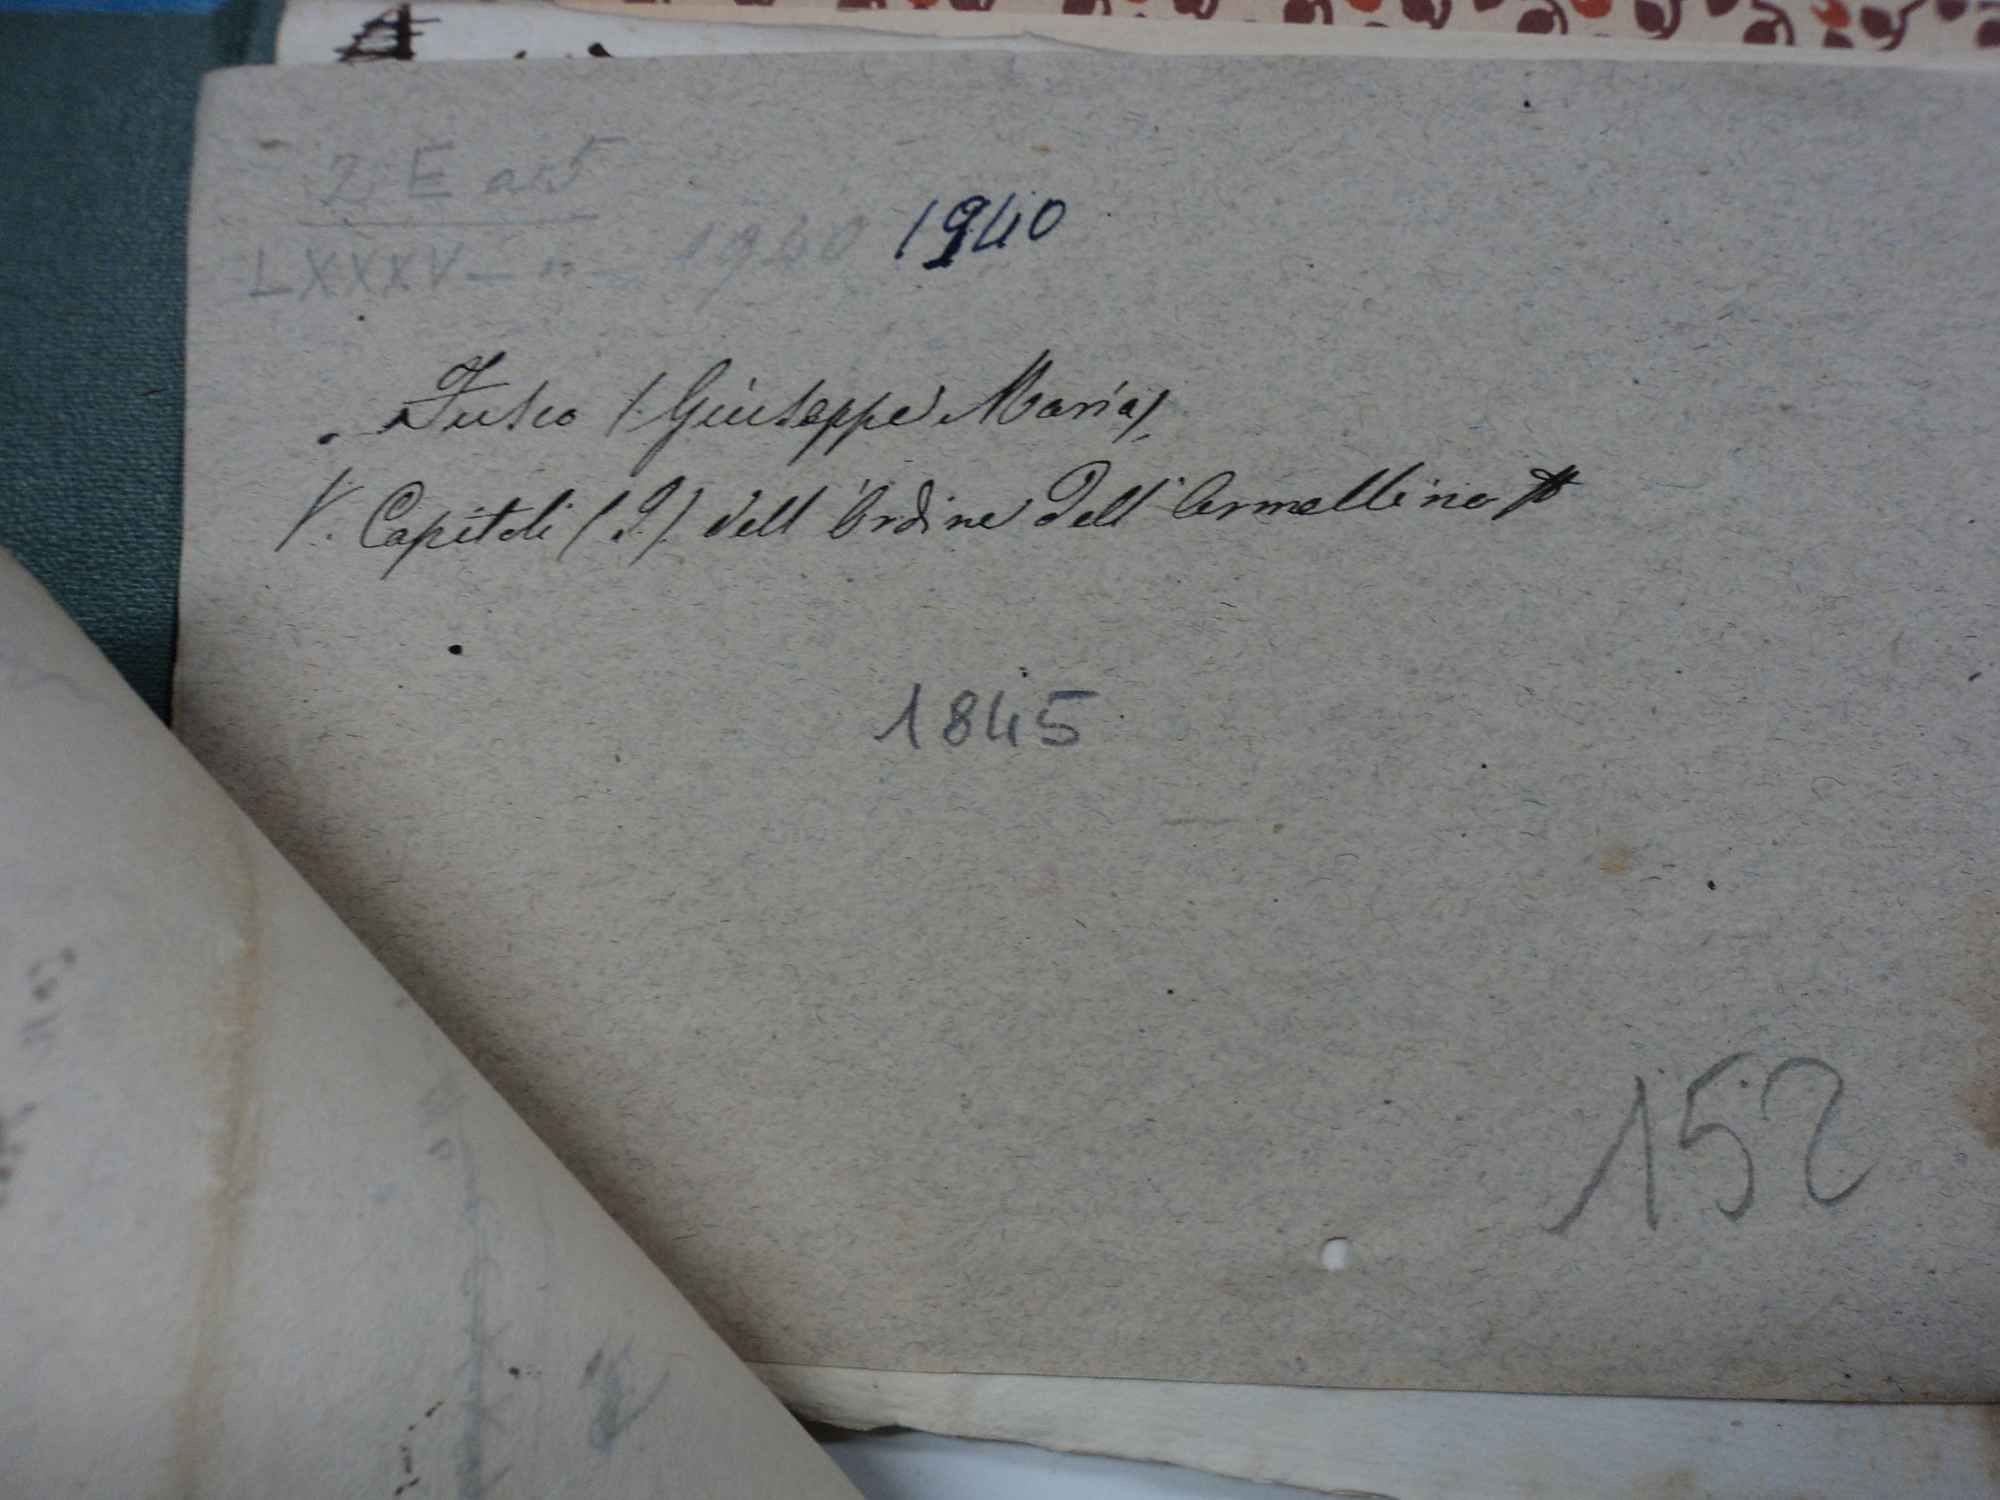 2 E a 5
LXXXV - n - 1940 1940
Fusco (Giuseppe Maria)
V. Capitoli (I) dell'Ordine dell'Armellino
1845
152